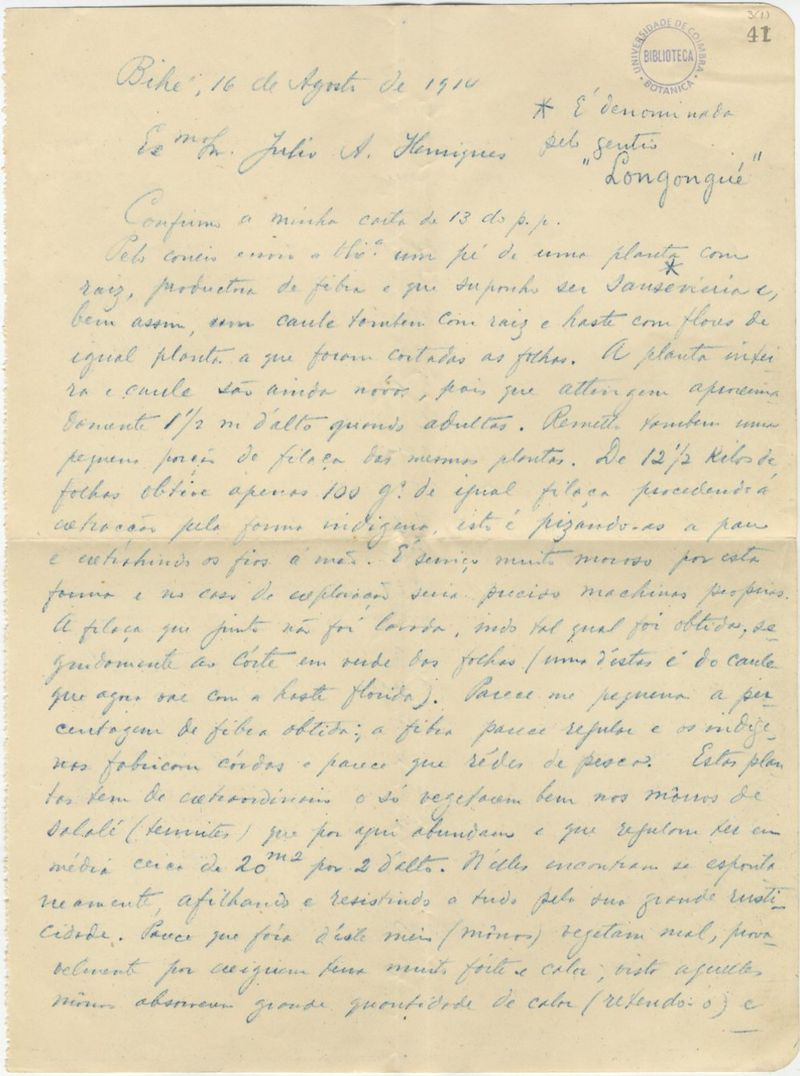 3(1)
41
UNIVERSIDADE DE COIMBRA
BIBLIOTECA
BOTANICA
Bihé, 16 de Agosto de 1914
* É denominada
pelo gentio
"Longongué"
Exmo Sr. Julio A. Henriques
Confirmo a minha carta de 13 do p.p.
Pelo correio envio a um pé de uma planta com
raiz, productora de fibra e que supponho ser Sansevieria * e,
bem assim, um caule tambem com raiz e haste com flores de
igual planta a que foram cortadas as folhas. A planta intei
ra e caule são ainda nóvos, pois que attingem aproxima
damente 1 1/2 m d'alto quando adultas. Remetto tambem uma
pequena porção de filaça das mesmas plantas. De 12 1/2 Kilos de
folhas obtive apenas 100 gs. de igual filaça procedendo á
extracção pela forma indigena, isto é pizando-as a pau
e extrahindo os fios á mão. É serviço muito moroso por esta
forma e no caso de exploração seria preciso machinas proprias.
A filaça que junto não foi lavada, indo tal qual foi obtida, se
guidamente ao córte em verde das folhas (uma d'estas é do caule
que agora vae com a haste florida). Parece me pequena a per-
centagem de fibra obtida; a fibra parece regular e os indige-
nas fabricam córdas e parece que rêdes de pesca. Estas plan
tas tem de extraordinario o só vegetarem bem nos môrros de
salalé (termites) que por aqui abundam e que regulam ter em
média cerca de 20 m2 por 2 d'alto. N'elles encontram se esponta
neamente, afilhando e resistindo a tudo pela sua grande rusti-
cidade. Parece que fóra d'éste meio (môrros) vegetam mal, prova-
velmente por exigirem terra muito forte e calor, visto aquelles
môrros absorverem grande quantidade de calor (retendo-o) e